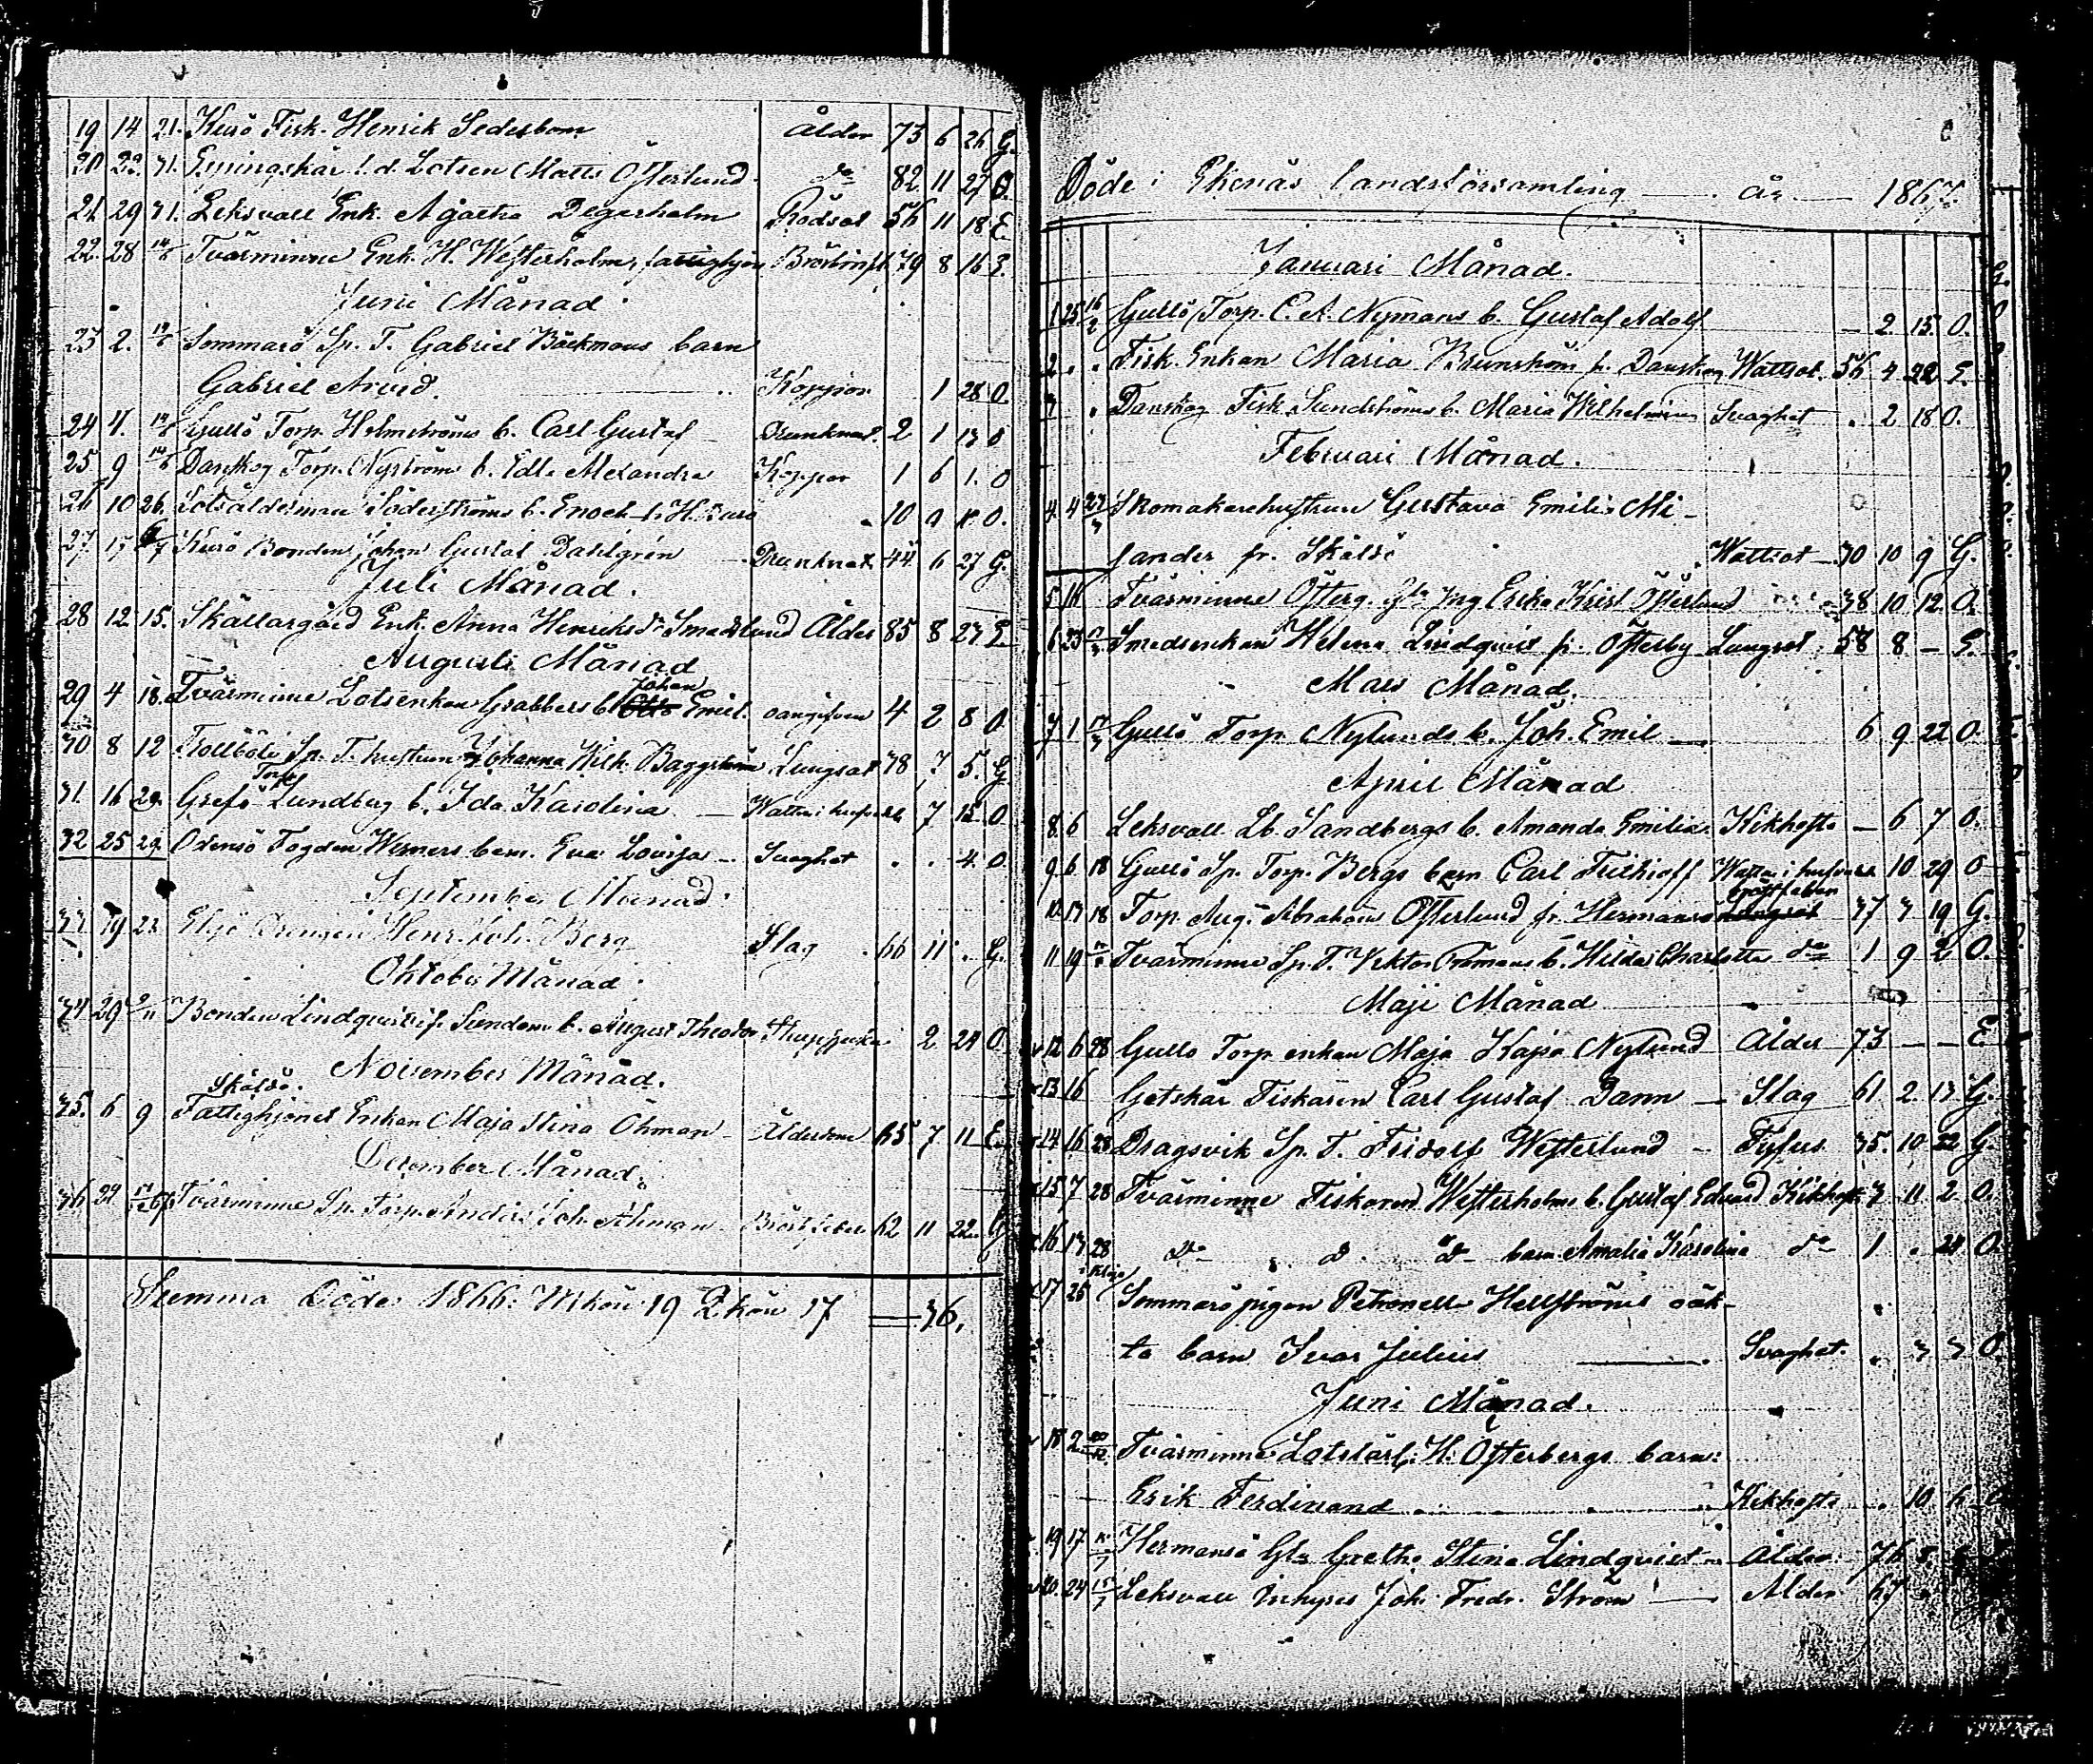 19 14 21. Kusö Fisk. Henrik Sederbom Ålder 73 6 26 G.
20 22. 31. Espingskär f. d. Lotsen Matts Österlund do 82 11 27 G.
21 29 31. Leksvall Enk. Agatha Degerholm Rödsot 56 11 18 E.
22. 28 14/6 Tvärminne Enk. H. Westerholm, fattighjon Bröstinfl. 79 8 16 E.
Juni Månad.
23 2. 14/6 Sommarö Sp. T. Gabriel Bäckmans barn
Gabriel Arvid. Koppor 1 28 O.
24 4. 14/6 Gullö Torp. Holmströms b. Carl Gustaf Drunknat. 2 1 13 O
25 9 14/6 Danskog Torp. Nyströms b. Edla Alexandra Koppor 1 6 1. O
26 10 26. Lotsålderman Söderströms b. Enoch fr. H. 10 9 O.
27. 17 Kusö Bonden Johan Gustaf Dahlgren Drunknat 44 6 27 G.
Juli Månad.
28 12 15. Skällargård Enk. Anna Henriksdr Smedslund Ålder 85 8 23 E
Augusti Månad
Johan
29 4 18. Tvärminne Lotsenkan Grabbers b. Otto Emil. oangifven 4 2 8 O.
30 8 12 Trollböle Sp. T. hustrun Johanna Wilh. Baggström Lungsot 38 7 5. G
Torp.
31. 16 29. Grefö Lundberg b. Ida Karolina Watten i hufvudet 7 12 O
32 25 29. Odensö Fogden Werners barn. Eva Lovisa Svaghet . . 4. O
September Månad.
33. 19 23 Elgö Drengen Henr. Joh. Berg Slag 66 11 . G.
Oktober Månad.
34 29 9/11 Bonden Lindqvists fr. Sundom b. August Theodor Strupsjuka 2 24 O.
November Månad.
Skåldö.
35. 6 9 Fattighjonet Enkan Maja Stina Öhman Ålderdom 65 7 11 E.
December Månad.
36 24 Tvärminne Sp. Torp. Anders Joh. Åhman Bröstfeber 62 11 22. G
Summa Döde 1866: Mkön 19 Qkön 17 = 36.
Döde i Ekenäs landsförsamling år 1867.
Januari Månad.
1 25 16/2 Gullö Torp. C. A. Nymans b. Gustaf Adolf — 2 15. O.
2 . . Fisk. Enkan Maria Brunström fr. Danskog Wattsot. 56 4 22 E.
3 . Danskog Fisk. Sundströms b. Maria Wilhelmina Svaghet . 2 18 O.
Februari Månad.
4. 4 Skomakarehustrun Gustava Emilia Mi-
lander fr. Skåldö Wattsot 30 10 9 G.
5 16 Tvärminne Österg. Jng. Erika Krist. Österlund 38 10 12. O.
6 23 Smedsenkan Helena Lindqvist fr. Österby Lungsot 58 8 — E.
Mars Månad.
7 1 17/3 Gullö Torp. Nylunds b. Joh. Emil 6 9 22 O.
April Månad
8. 6 Leksvall Lb. Sandbergs b. Amanda Emilia. Kikhosta — 6 7 O.
9 6 18 Gullö Sp. Torp. Bergs barn Carl Frithioff Watten i hufvudet 10 29 O
Bröstfeber
10. 13 18 Torp. Aug. Abraham Österlund fr. Hermansö Lungsot 37 3 19 G.
11 19 Tvärminne Sp. T. Viktor b. Hilda Charlotta do 1 9 2 O.
Maji Månad
12 6 28 Gullö Torp enkan Maja Kajsa Nylund Ålder 73 — — E
13 16 Getskär Fiskaren Carl Gustaf Dann Slag 61 2. 13 G.
14 16 28 Dragsvik Sp. T. Fridolf Westerlund Tyfus 35. 10 22 G.
15 7 28 Tvärminne Fiskaren Westerholms b. Gustaf Edvard Kikhosta 3 11 2 O.
16 13 28 do d d barn Amalia Karolina do 1 . 24 O.
17 26 Sommarö pigan Petronella Hellströms oäk-
ta barn Ivar Julius Svaghet . 3 3 O.
Juni Månad.
18 2 Tvärminne Lotslärl. H. Österbergs barn:
Erik Ferdinand Kikhosta . 10 6
19 17 Hermansö Gretha Stina Lindqvist Ålder 76
20. 24 15/7 Leksvall Inhyses Joh. Fredr. Ström Ålder 67